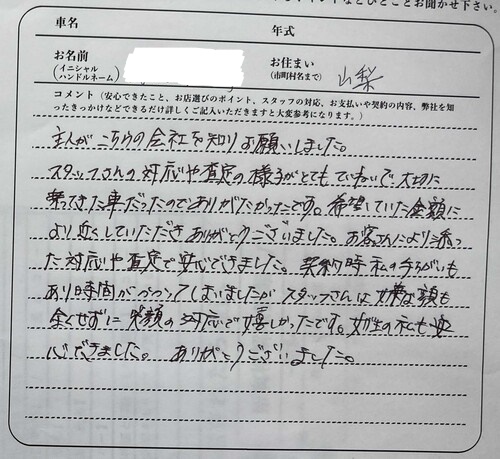 とお聞かせ下さい。
車名 年式
お名前 お住まい
(イニシャル (市町村名まで) 山梨
ハンドルネーム)
コメント(安心できたこと、お店選びのポイント、スタッフの対応、お支払いや契約の内容、弊社を知
ったきっかけなどできるだけ詳しくご記入いただきますと大変参考になります。)
主人がこちらの会社を知りお願いしました。
スタッフさんの対応や査定の様子がとてもていねいで大切に
乗ってきた車だったのでありがたかったです。希望していた金額に
より近くしていただきありがとうございました。お客さんにより添っ
た対応や査定で安心できました。契約時私の手ちがいも
あり時間がかかってしまいましたがスタッフさんは嫌な顔も
全くせずに笑顔の対応で嬉しかったです。女性の私でも安
心できました。 ありがとうございました。